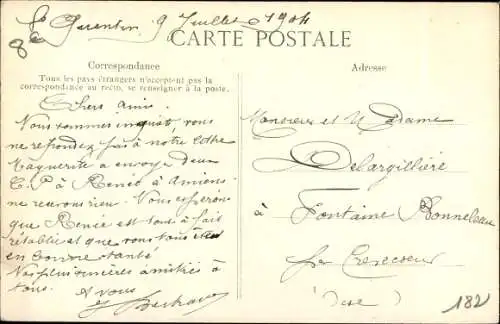 St Quentin 9 Juillet 1904
CARTE POSTALE
Correspondance
Tous les pays étrangers n'acceptent pas la
correspondance au recto, se renseigner à la poste.
Chers amis.
Nous sommes inquiet, vous
ne repondez pas à notre lettre
Marguerite a envoyé deux
C.P à Renée à Amiens
ne recevons rien. Nous esperons
que Renée est tout à fait
rétablie et que vous tous êtes
en bonne santé
Nos plus sincères amitiés à
tous. A vous
Adresse
Monsieur et Madame
Delargillière
à Fontaine Bonneleau
par Crevecoeur
Oise
182